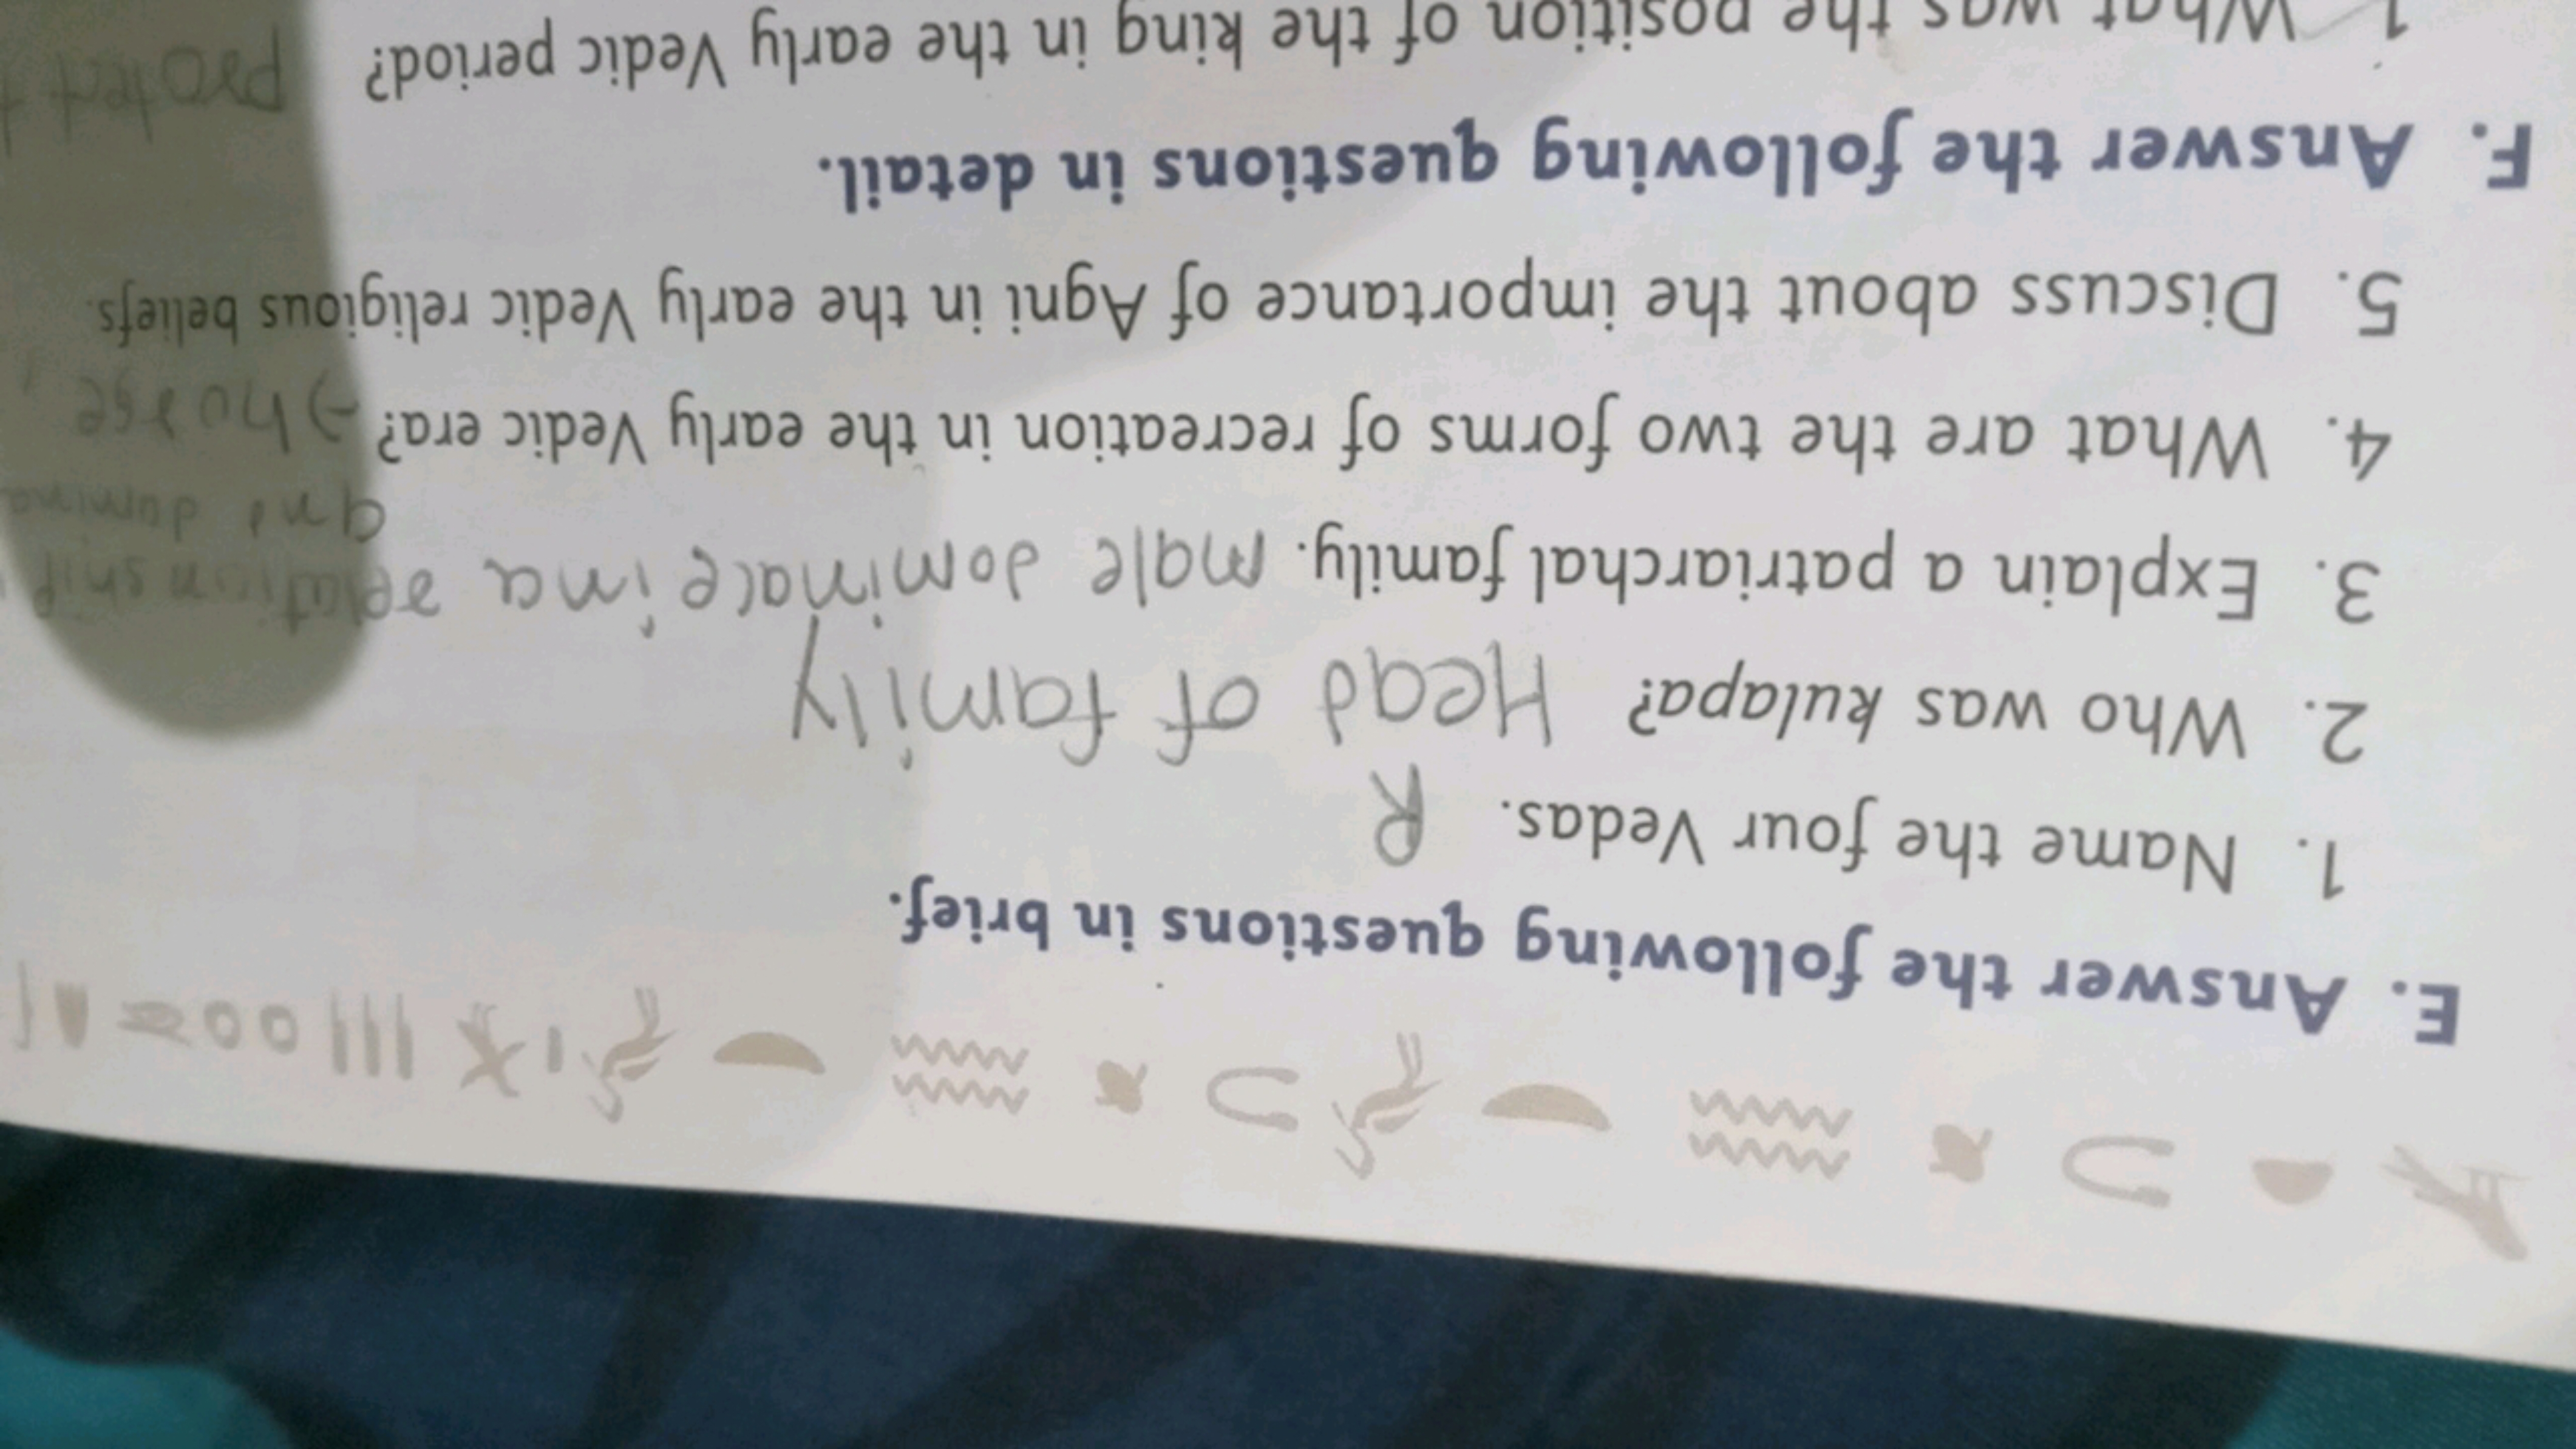 E. Answer the following questions in brief.
1. Name the four Vedas. R
2. Who was kulapa? Head of family
3. Explain a patriarchal family. male dominace in a relationship
and domina
4. What are the two forms of recreation in the early Vedic era? → horse
5. Discuss about the importance of Agni in the early Vedic religious beliefs.
F. Answer the following questions in detail.
1. What was the position of the king in the early Vedic period? protect